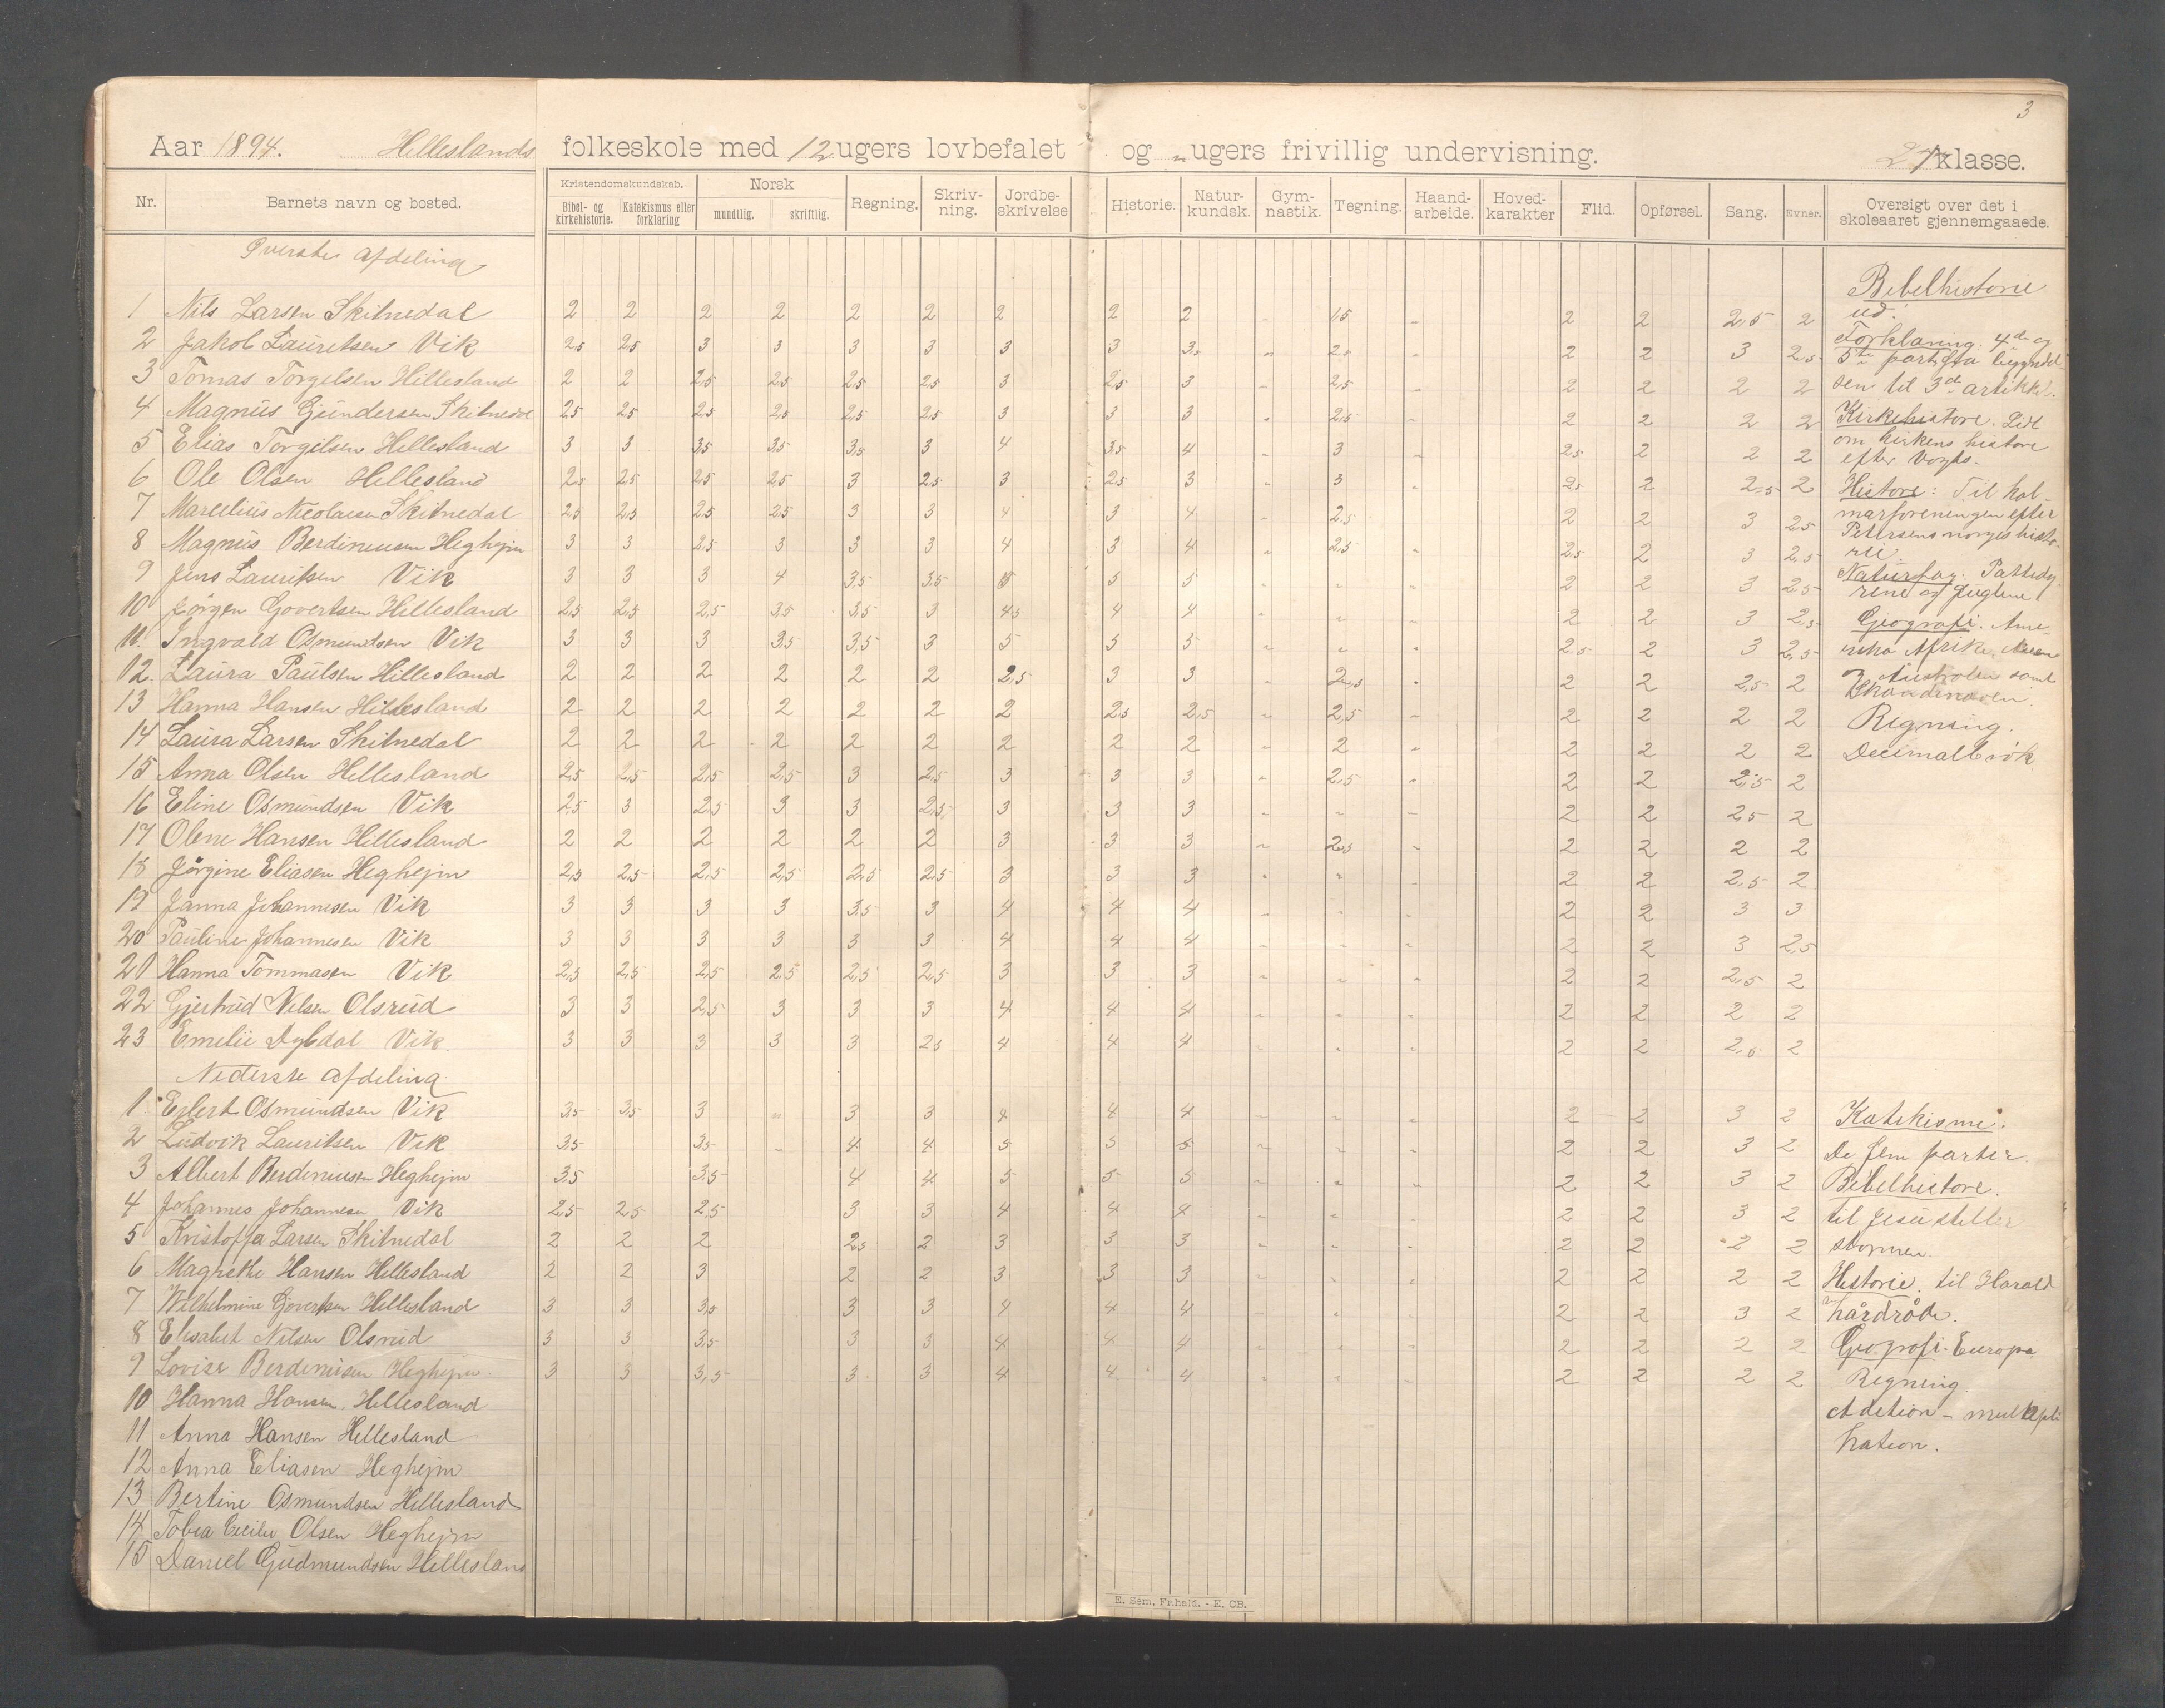 3
Aar 1894. Hilleslands folkeskole med 12 ugers lovbefalet og „ ugers frivillig undervisning. 2 klasse.
Nr. Barnets navn og bosted. Kristendomskundskab. Bibel- og kirkehistorie. Katekismus eller forklaring Norsk mundtlig. skriftlig. Regning. Skriv-ning. Jordbe-skrivelse Historie. Natur-kundsk. Gym-nastik. Tegning. Haand-arbeide. Hoved-karakter Flid. Opførsel. Sang. Evner. Oversigt over det i skoleaaret gjennemgaaede.
Øverste afdeling
Bibelhistorie
1 Nils Larsen Skitnedal 2 2 2 2 2 2 2 2 2 „ 1,5 „ 2 2 2,5 2 ud.
2 Jakob Lauritsen Vik 2,5 2,5 3 3 3 3 3 3 3,5 „ 2,5 „ 2 2 3 2,5 Forklaring. 4de og
5te part fra begyndel
3 Tomas Torgelsen Hillesland 2 2 2,5 2,5 2,5 2,5 3 2,5 3 „ 2,5 „ 2 2 2 2 sen til 3de artikkel.
4 Magnus Gundersen Skitnedal 2,5 2,5 2,5 2,5 2,5 2,5 3 3 3 „ 2,5 „ 2 2 2 2 Kirkehistore. Lidt
5 Elias Torgilsen Hillesland 3 3 3,5 3,5 3,5 3 4 3,5 4 „ 3 „ 2,5 2 2 2 om kirkens histore
efter Vogts.
6 Ole Olsen Hillesland 2,5 2,5 2,5 2,5 3 2,5 3 2,5 3 „ 3 „ 2,5 2 2,5 2 Histore: Til kal-
7 Marselius Nicolaisen Skitnedal 2,5 2,5 2,5 2,5 3 3 4 3 4 „ 2,5 „ 2 2 3 2,5 marforeningen efter
Petersens norges histo-
8 Magnus Berdiniusen Heghejm 3 3 2,5 3 3 3 4 3 4 „ 2,5 „ 2,5 2 3 2,5 rie.
9 Jens Lauritsen Vik 3 3 3 4 3,5 3,5 5 5 5 „ „ „ 2 2 3 2,5 Naturfag. Pattedy-
rene og fuglene
10 Jörgen Govertsen Hillesland 2,5 2,5 2,5 3,5 3,5 3 4,5 4 4 „ „ „ 2 2 3 2,5 Geografi. Ame-
11. Ingvald Osmundsen Vik 3 3 3 3,5 3,5 3 5 5 5 „ „ „ 2,5 2 3 2,5 rika Afrika, Asien
12. Laura Paulsen Hillesland 2 2 2 2 2 2 2,5 3 3 „ 2,5 „ 2 2 2,5 2 og Australien samt
Skandinavien.
13 Hanna Hansen Hillesland 2 2 2 2 2 2 2 2,5 2,5 „ 2,5 „ 2 2 2 2 Regning.
14 Laura Larsen Skitnedal 2 2 2 2 2 2 2 2 2 „ 2 „ 2 2 2 2 Decimalbrök
15 Anna Olsen Hillesland 2,5 2,5 2,5 2,5 3 2,5 3 3 3 „ 2,5 „ 2 2 2,5 2
16 Eline Osmundsen Vik 2,5 3 2,5 3 3 2,5 3 3 3 „ „ „ 2 2 2,5 2
17 Olene Hansen Hillesland 2 2 2 2 2 2 3 3 3 „ 2,5 „ 2 2 2 2
18 Jörgine Eliasen Heghejm 2,5 2,5 2,5 2,5 2,5 2,5 3 3 3 „ „ „ 2 2 2,5 2
19 Janna Johannesen Vik 3 3 3 3 3,5 3 4 4 4 „ „ „ 2 2 3 3
20 Pauline Johannesen Vik 3 3 3 3 3 3 4 4 4 „ „ „ 2 2 3 2,5
21 Hanna Tommasen Vik 2,5 2,5 2,5 2,5 2,5 2,5 3 3 3 „ „ „ 2 2 2,5 2
22 Gjertrud Nilsen Olsrud 3 3 2,5 3 3 3 4 4 4 „ „ „ 2 2 2 2
23 Emelie Dybdal Vik. 3 3 3 3 3 2,5 4 4 4 „ „ „ 2 2 2,5 2
Nederste afdeling
1. Eilert Osmundsen Vik 3,5 3,5 3 „ 3 3 4 4 4 „ „ „ 2 2 3 2 Katekisme.
2 Ludvik Lauritsen Vik 3,5 3,5 „ 4 4 5 5 5 „ „ „ 2 2 3 2 De fem parter.
3 Albert Berdiniusen Heghejm 3,5 3,5 4 4 5 5 5 „ „ „ 2 2 3 2 Bibelhistore.
4 Johannes Johannesen Vik 2,5 2,5 2,5 3 3 4 4 4 „ „ „ 2 2 3 2 til Jesu stiller
5 Kristoffa Larsen Skitnedal 2 2 2 2,5 2 3 3 3 „ „ „ 2 2 2 2 stormen.
6 Magrethe Hansen Hillesland 2 2 3 2 2 3 3 3 „ „ „ 2 2 2 2 Historie. til Harald
7 Wilhelmine Govertsen Hillesland 3 3 3,5 3 3 4 4 4 „ „ „ 2 2 3 2 hårdråde.
8 Elisabet Nilsen Olsrud 3 3 3,5 3 3 4 4 4 „ „ „ 2 2 2 2 Geografi. Europa
9 Lovise Berdiniusen Heghejm. 3 3 3,5 3 3 4 4 4 „ „ „ 2 2 2 2 Regning.
10 Hanna Hansen. Hillesland Adition - multipli
11 Anna Hansen Hillesland kation.
12 Anna Eliasen Heghejm
13 Bertine Osmundsen Hillesland
14 Tobia Cecilie Olsen Heghejm
15 Daniel Gudmundsen Hillesland
E. Sem, Fr.hald. - E. CB.